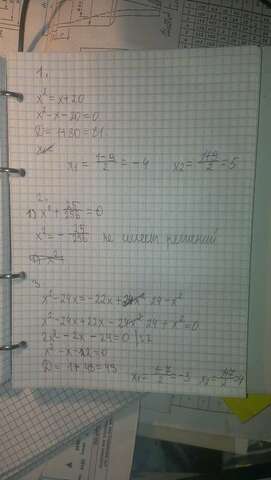 1.
x² = x+20
x² - x - 20 = 0
D = 1+80 = 81
x₁ = (1-9)/2 = -4   x₂ = (1+9)/2 = 5
2.
1) x² + 25/256 = 0
x² = -25/256 не имеет решений
3
x² - 24x = -22x + 24 - x²
x² - 24x + 22x - 24 + x² = 0
2x² - 2x - 24 = 0 | :2
x² - x - 12 = 0
D = 1+48 = 49   x₁ = (1-7)/2 = -3   x₂ = (1+7)/2 = 4